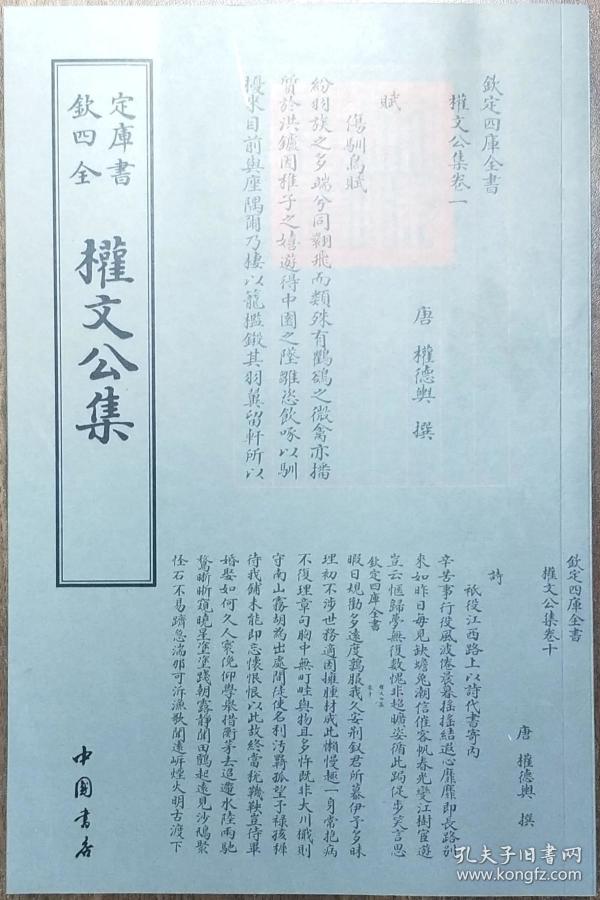 欽定四庫全書
權文公集
中國書店
欽定四庫全書
權文公集卷一
唐 權德輿 撰
賦
傷馴鳥賦
紛羽族之多端兮同翾飛而類殊有鸜鵒之微禽亦播
質於洪鑪因稚子之嬉遊得中園之墜雛恣飲啄以馴
擾來目前與座隅爾乃棲以籠檻鎩其羽翼留軒所以
欽定四庫全書
權文公集卷十
唐 權德輿 撰
詩
祗役江西路上以詩代書寄內
辛苦事行役風波倦晨暮搖搖結遐心靡靡即長路別
來如昨日每見缺蟾兔潮信催客帆春光變江樹宦遊
豈云愜歸夢無復數愧非超曠姿循此跼促步笑言思
欽定四庫全書
暇日規勸多遠度鶉服我久安荆釵君所慕伊予多昧
理初不涉世務適因擁腫材成此懶慢趣一身常抱病
不復理章句胸中無町畦與物且多忤既非大川檝則
守南山霧胡為出處間徒使名利汚羇孤望予祿孩稚
待我餔未能即忘懷恨恨以此故終當税鞿鞅豈待畢
婚娶如何久人寰俛仰學舉措衡茅去迢遰水陸兩馳
騖晰晰窺曉星塗塗踐朝露靜聞田鶴起遠見沙鴇聚
怪石不易躋急湍那可泝漁歌聞遠嶼煙火明古渡下
孔夫子旧书网
www.kongfz.com